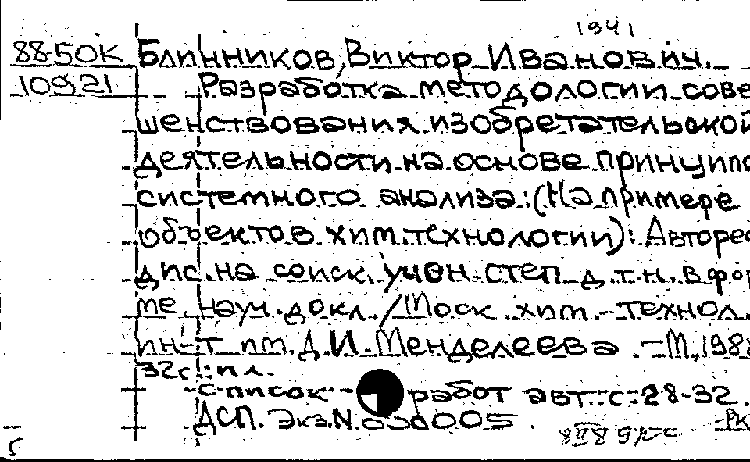 1941
88-50К Блинников, Виктор Иванович.
10921 Разработка методологии сове
шенствования изобретательской
деятельности на основе принципо
системного анализа: (На примере
объектов хим. технологии): Авторе
дис. на соиск. учен. степ. д. т. н. в фор
ме науч. докл. / Моск. хим.- технол.
ин-т им. Д. И. Менделеева. - М., 1988
32с.: ил.
Список работ авт.: с. 28-32.
ДСП. Экз. N. 000005.